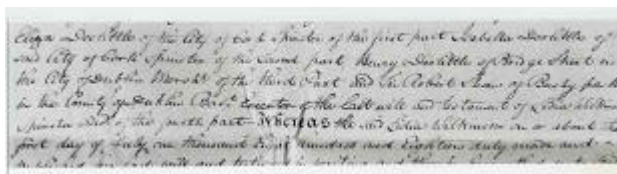 Eliza Doolittle of the City of Cork Spinster of the first part Isabella Doolittle of
said City of Cork Spinster of the Second part Henry Doolittle of Bridge Street in
the City of Dublin Merch.t of the Third Part and Sir Robert Shaw of Bushy park
in the County of Dublin Bar.t Executor of the Last will and testament of Lydia
Spinster Dec.d of the fourth part Whereas the said Lydia on or about the
first day of July one thousand Eight hundred and Eighteen duly made and
last will and in writing and